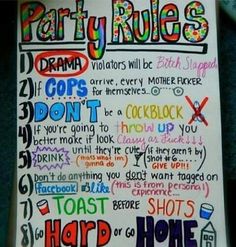 Party Rules
1) DRAMA violators will be Bitch Slapped
2) If COPS arrive, every MOTHER FUCKER
for themselves...
3) DON'T be a COCKBLOCK
4) If you're going to throw up you
better make it look Classy as Fuck↓↓↓
5) DRINK until they're cute (if they aren't by
(thats what im gunna do) Shot #6.....
GIVE UP!!!
6) Don't do anything you don't want tagged on
facebook #S like (this is from personal
experience...
7) TOAST BEFORE SHOTS
8) Go HARD or Go HOME